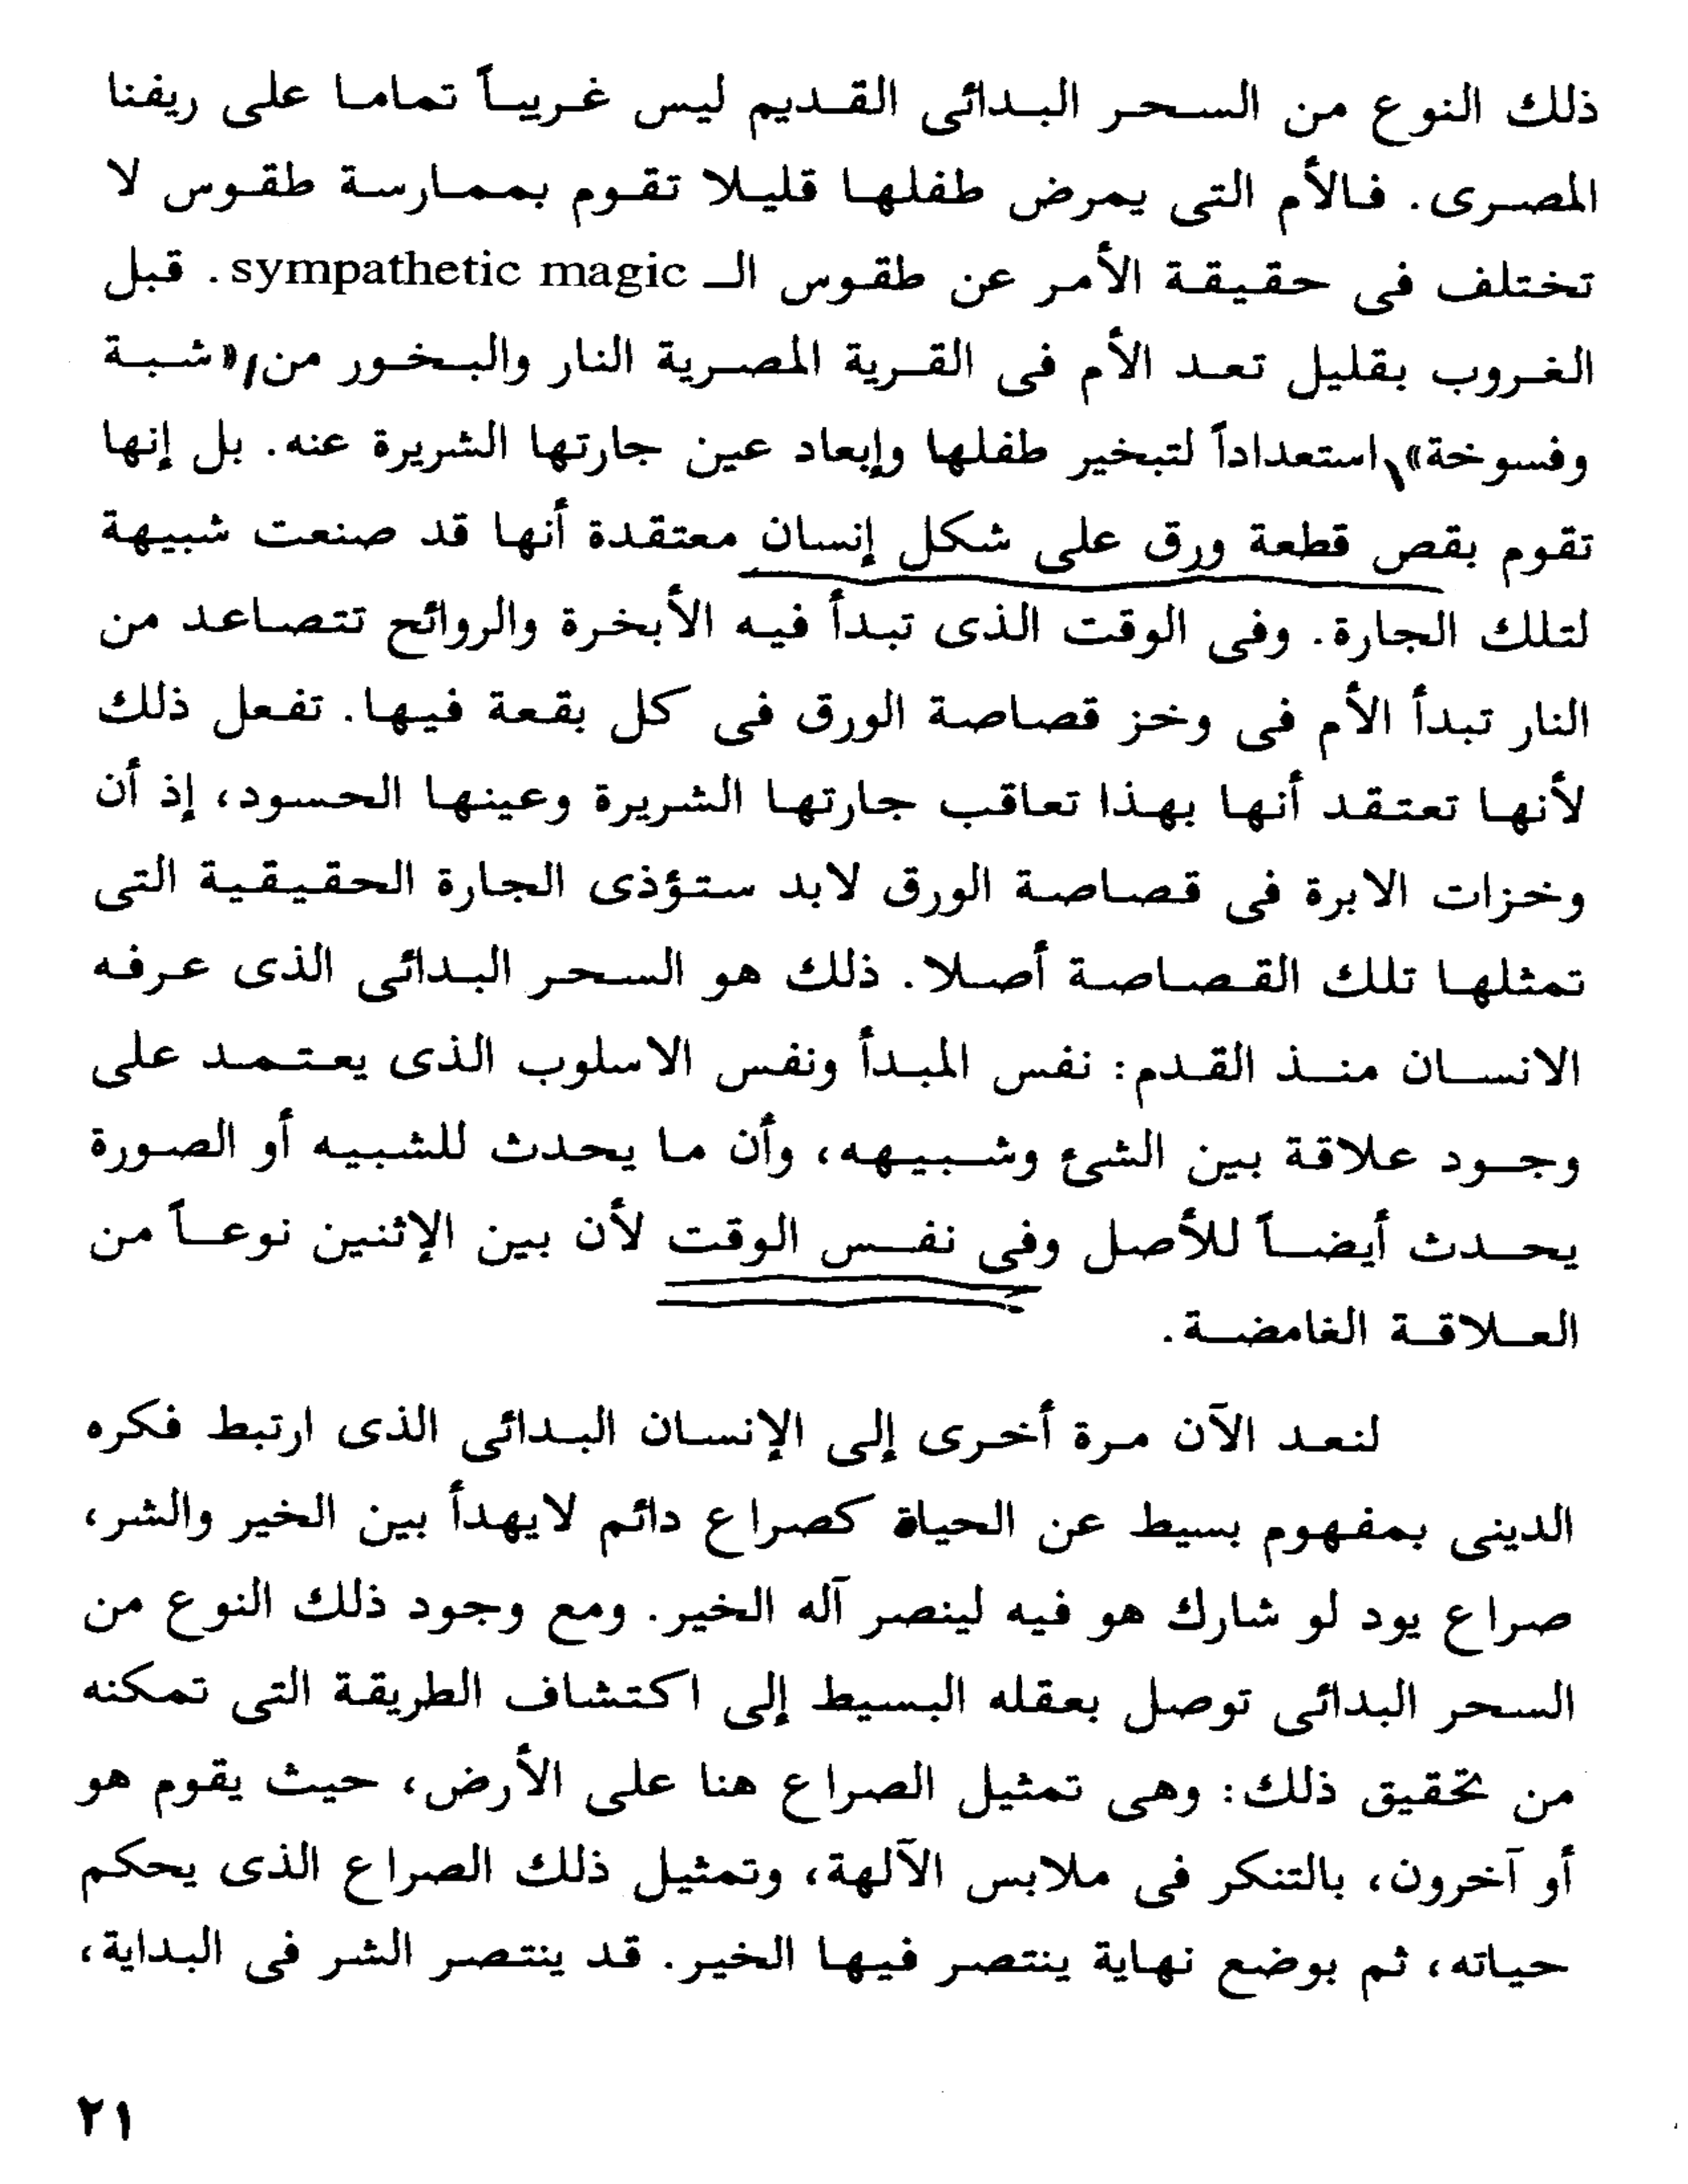 ذلك النوع من السحر البدائى القديم ليس غريباً تماما على ريفنا
المصرى. فالأم التى يمرض طفلها قليلا تقوم بممارسة طقوس لا
تختلف فى حقيقة الأمر عن طقوس الـ sympathetic magic. قبل
الغروب بقليل تعد الأم فى القرية المصرية النار والبخور من «شبة
وفسوخة» استعداداً لتبخير طفلها وإبعاد عين جارتها الشريرة عنه. بل إنها
تقوم بقص قطعة ورق على شكل إنسان معتقدة أنها قد صنعت شبيهة
لتلك الجارة. وفى الوقت الذى تبدأ فيه الأبخرة والروائح تتصاعد من
النار تبدأ الأم فى وخز قصاصة الورق فى كل بقعة فيها. تفعل ذلك
لأنها تعتقد أنها بهذا تعاقب جارتها الشريرة وعينها الحسود، إذ أن
وخزات الابرة فى قصاصة الورق لابد ستؤذى الجارة الحقيقية التى
تمثلها تلك القصاصة أصلا. ذلك هو السحر البدائى الذى عرفه
الانسان منذ القدم: نفس المبدأ ونفس الاسلوب الذى يعتمد على
وجود علاقة بين الشئ وشبيهه، وأن ما يحدث للشبيه أو الصورة
يحدث أيضاً للأصل وفى نفس الوقت لأن بين الإثنين نوعاً من
العلاقة الغامضة.
لنعد الآن مرة أخرى إلى الإنسان البدائى الذى ارتبط فكره
الدينى بمفهوم بسيط عن الحياة كصراع دائم لايهدأ بين الخير والشر،
صراع يود لو شارك هو فيه لينصر آله الخير. ومع وجود ذلك النوع من
السحر البدائى توصل بعقله البسيط إلى اكتشاف الطريقة التى تمكنه
من تحقيق ذلك: وهى تمثيل الصراع هنا على الأرض، حيث يقوم هو
أو آخرون، بالتنكر فى ملابس الآلهة، وتمثيل ذلك الصراع الذى يحكم
حياته، ثم بوضع نهاية ينتصر فيها الخير. قد ينتصر الشر فى البداية،
٢١